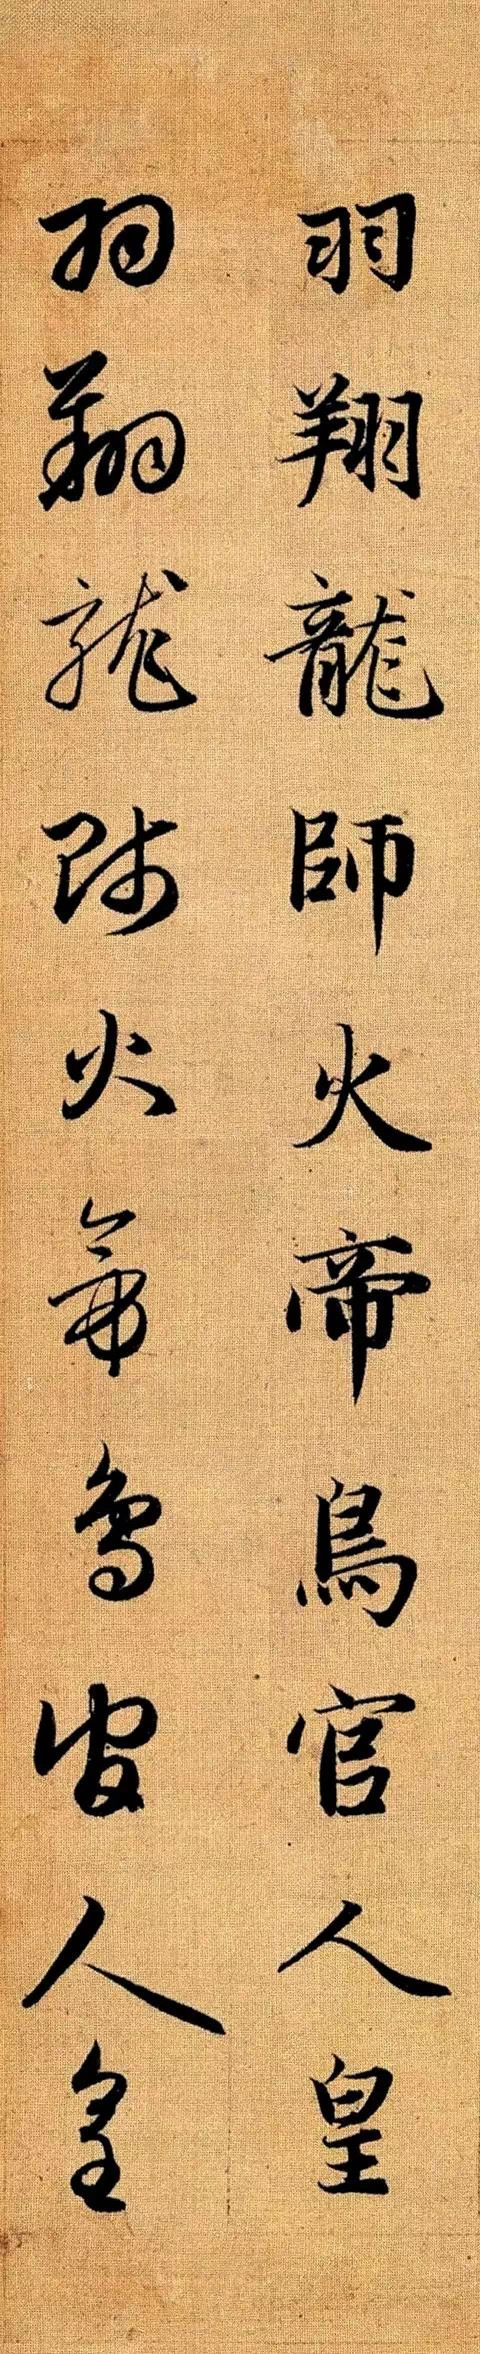 羽翔龍師火帝鳥官人皇
羽翔龍師火帝鳥官人皇